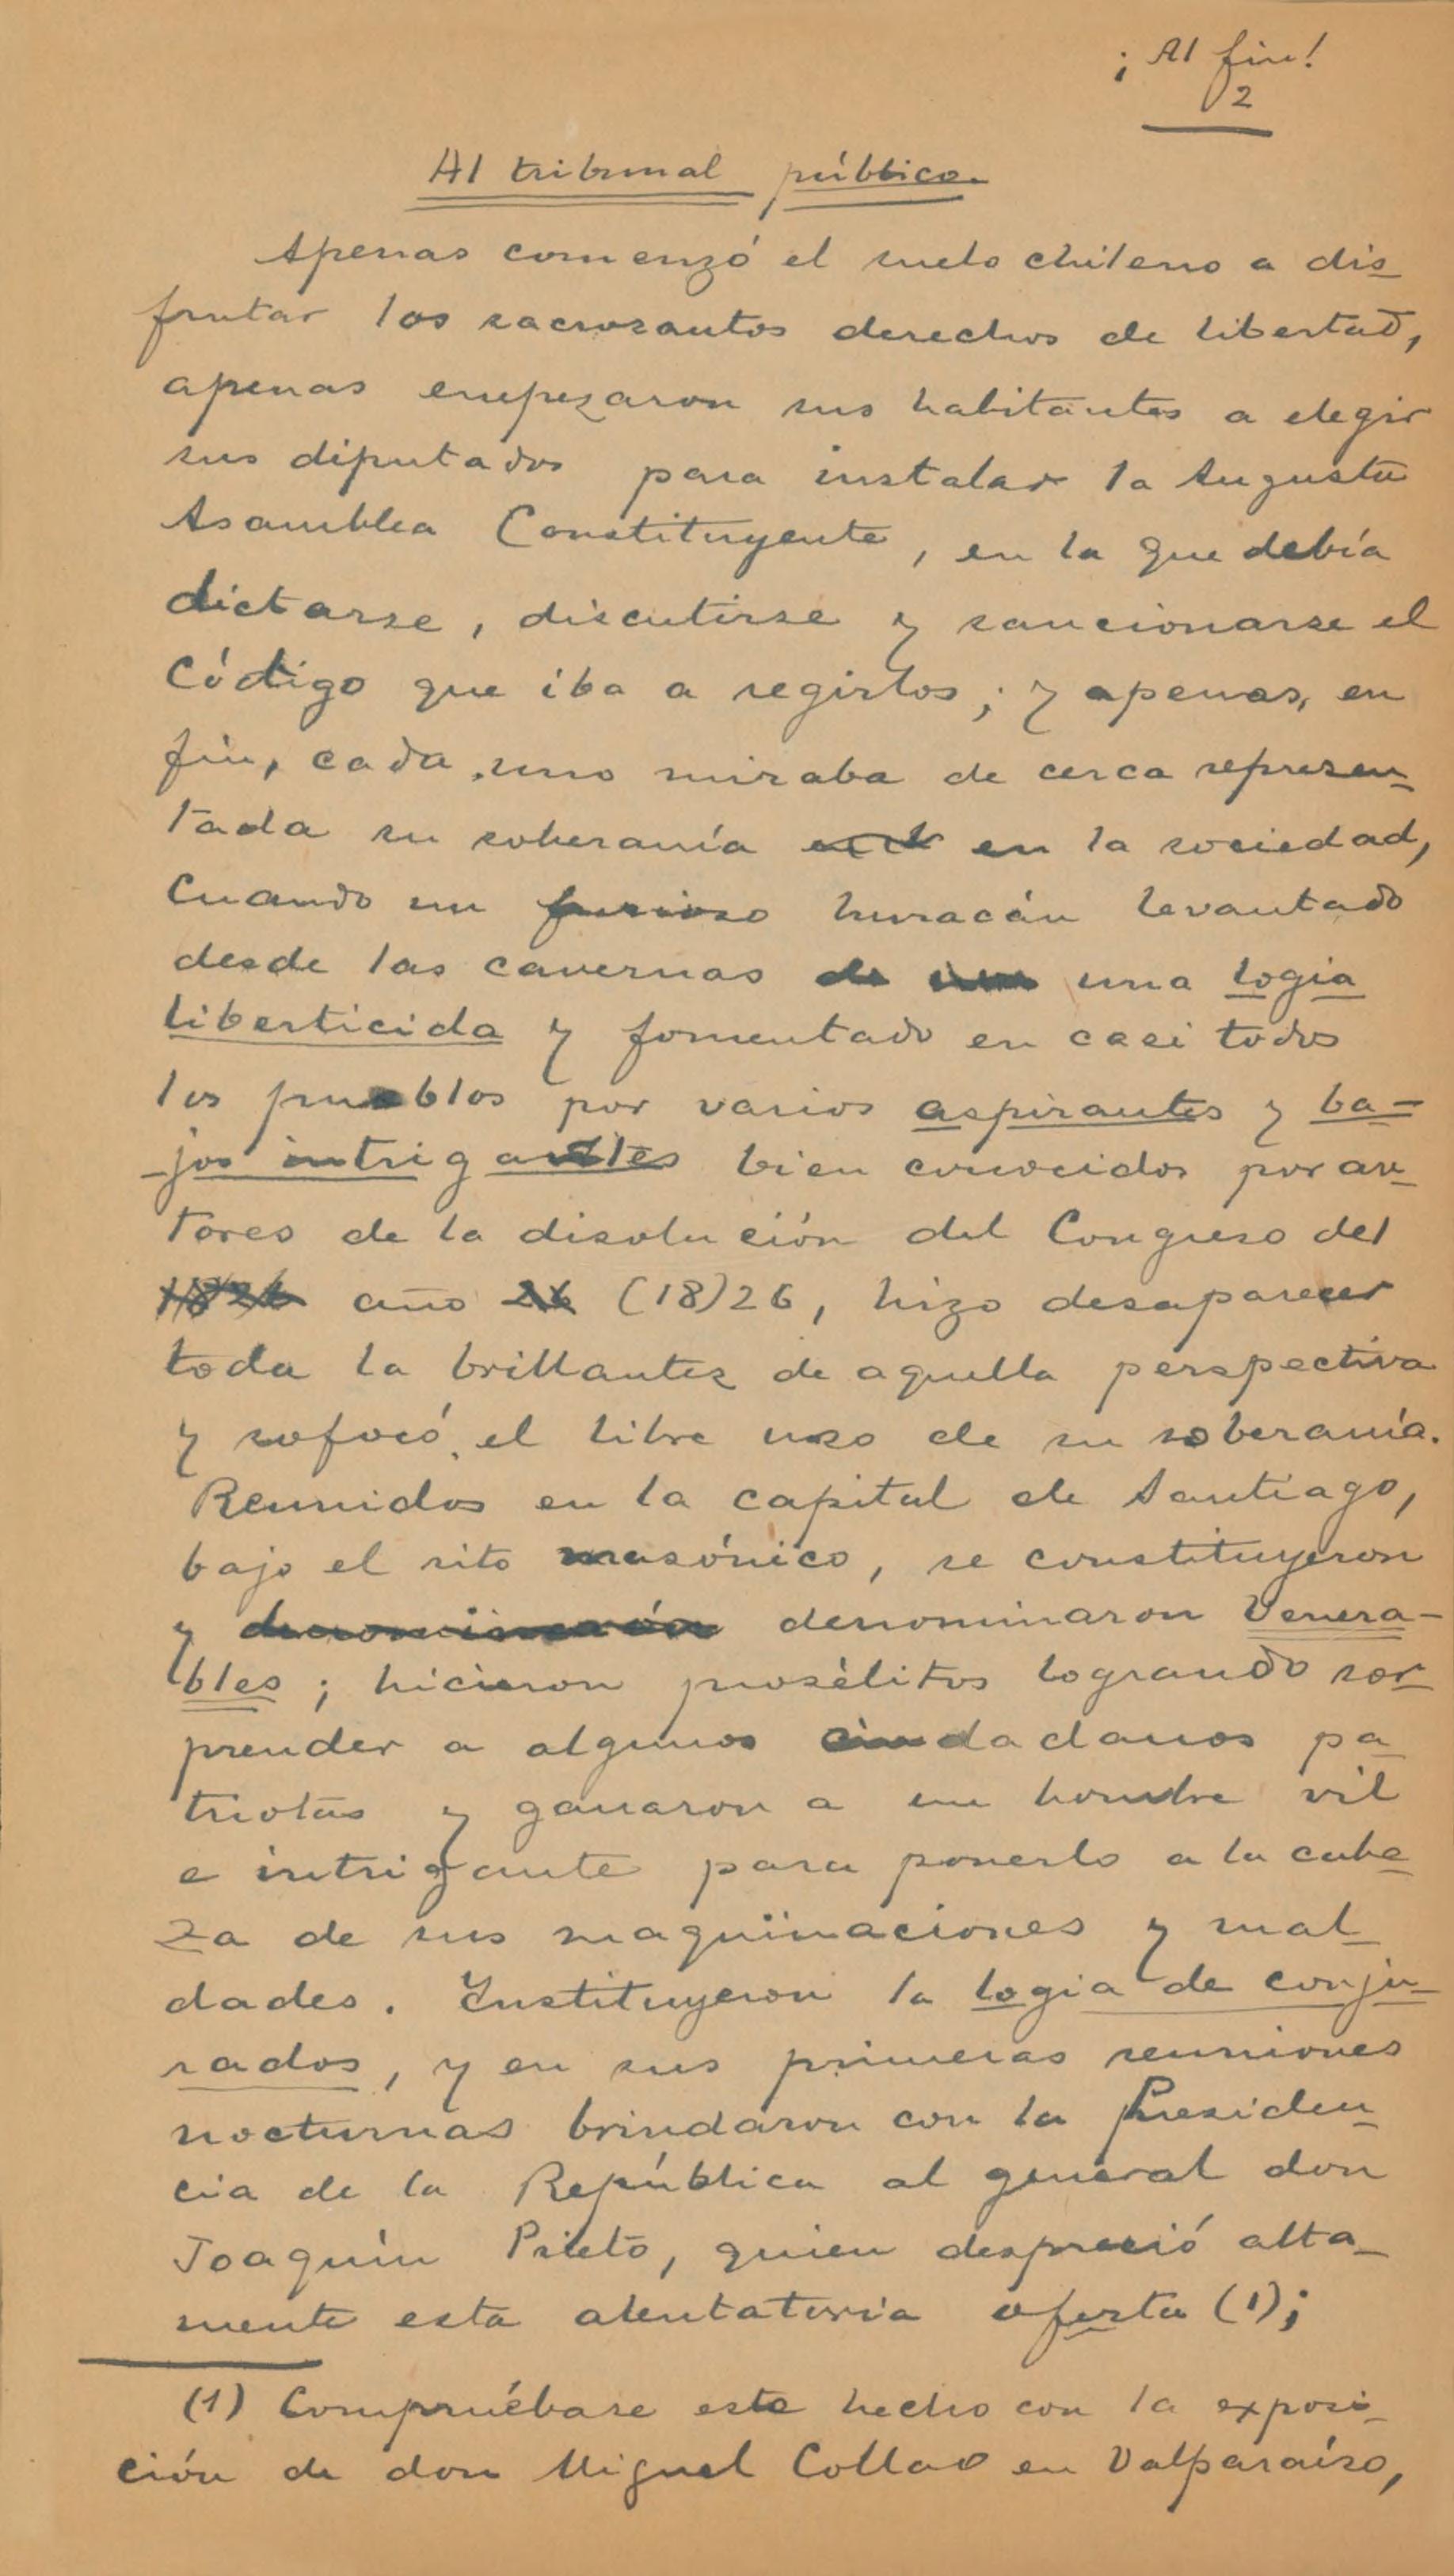 ¡Al fin!
2
Al tribunal público.
Apenas comenzó el suelo chileno a dis-
frutar los sacrosantos derechos de libertad,
apenas empezaron sus habitantes a elegir
sus diputados para instalar la Augusta
Asamblea Constituyente, en la que debía
dictarse, discutirse y sancionarse el
Código que iba a regirlos; y apenas, en
fin, cada uno miraba de cerca represen-
tada su soberanía en la sociedad,
cuando un furioso huracán levantado
desde las cavernas de una logia
liberticida y fomentado en casi todos
los pueblos por varios aspirantes y ba-
-jos intrigantes bien conocidos por au-
tores de la disolución del Congreso del
1826 año 26 (18)26, hizo desaparecer
toda la brillantez de aquella perspectiva
y sofocó el libre uso de su soberanía.
Reunidos en la capital de Santiago,
bajo el rito masónico, se constituyeron
y denominaron Venera-
bles; hicieron prosélitos logrando sor-
prender a algunos ciudadanos pa-
triotas y ganaron a un hombre vil
e intrigante para ponerlo a la cabe-
za de sus maquinaciones y mal-
dades. Instituyeron la logia de conju-
rados, y en sus primeras reuniones
nocturnas brindaron con la Presiden-
cia de la República al general don
Joaquín Prieto, quien despreció alta-
mente esta atentatoria oferta (1);
(1) Compruébase este hecho con la exposi-
ción de don Miguel Collao en Valparaíso,